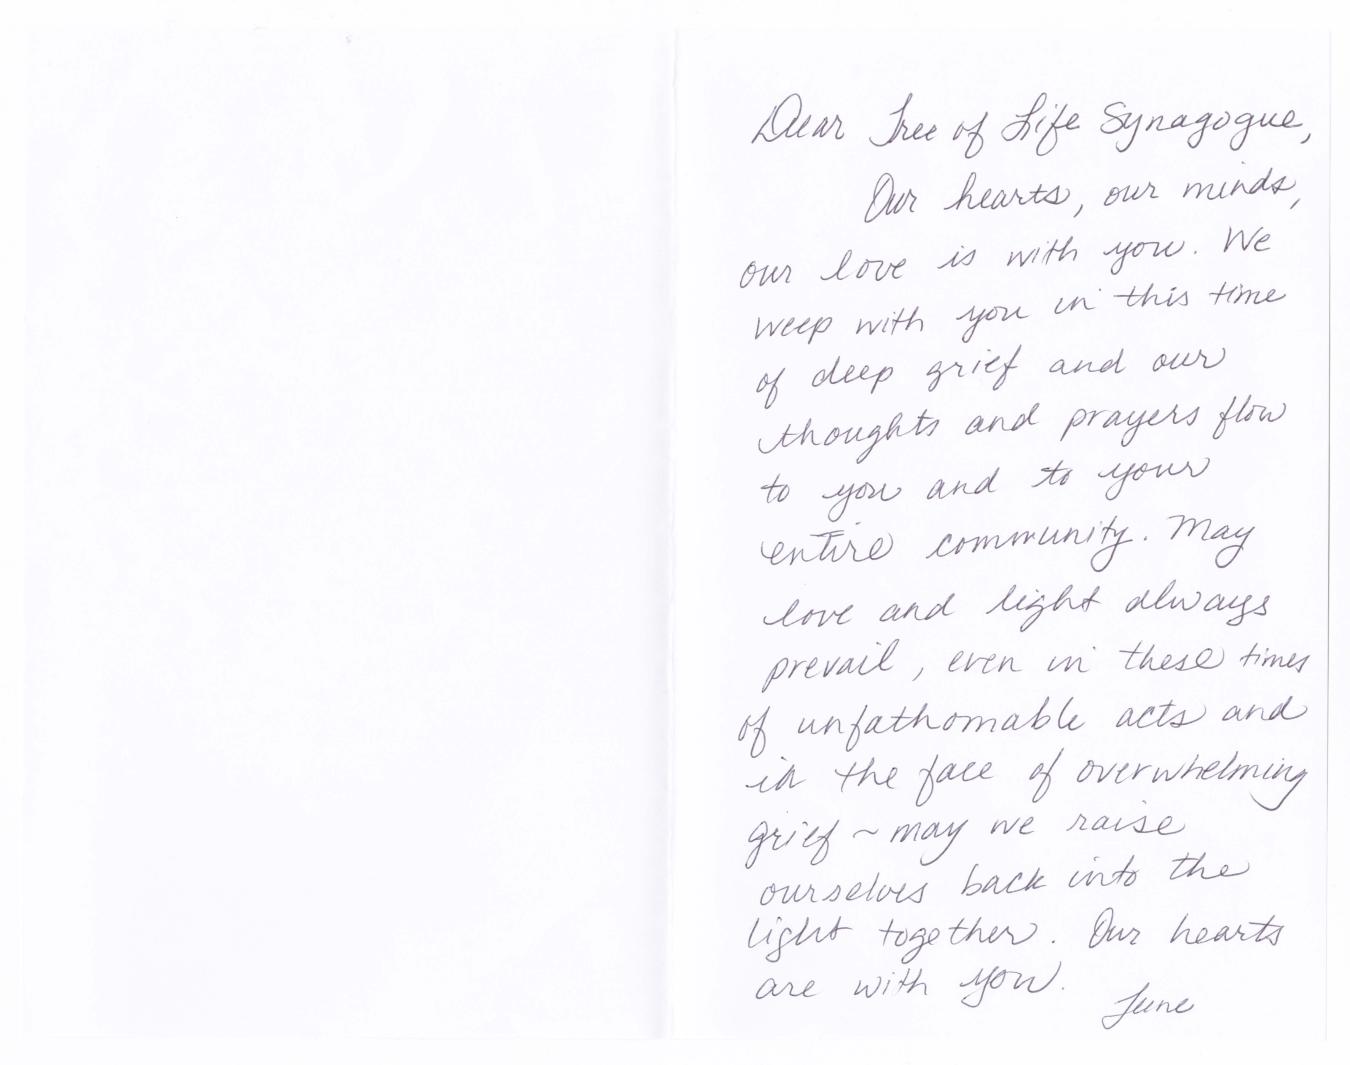 Dear Tree of Life Synagogue,
Our hearts, our minds,
our love is with you. We
weep with you in this time
of deep grief and our
thoughts and prayers flow
to you and to your
entire community. May
love and light always
prevail, even in these times
of unfathomable acts and
in the face of overwhelming
grief ~ may we raise
ourselves back into the
light together. Our hearts
are with you.
June